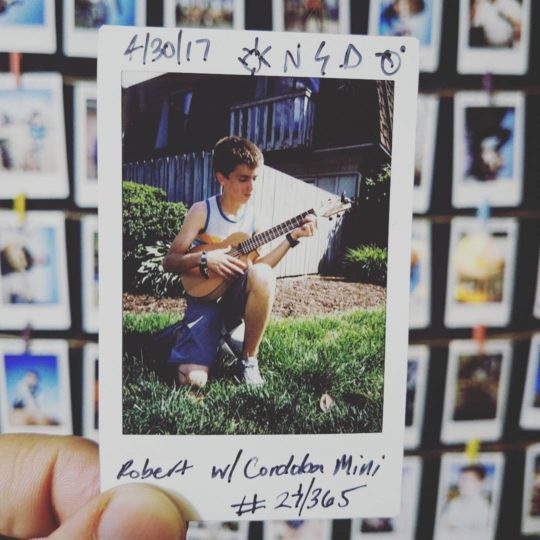 4/30/17 KNGDO
Robert w/ Cordoba Mini
/365